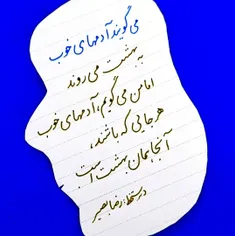 می‌گویند آدمهای خوب
به بهشت می‌روند
اما من می‌گویم، آدمهای خوب
هرجایی که باشند،
آنجا همان بهشت است
دستخط: رضا بصیر